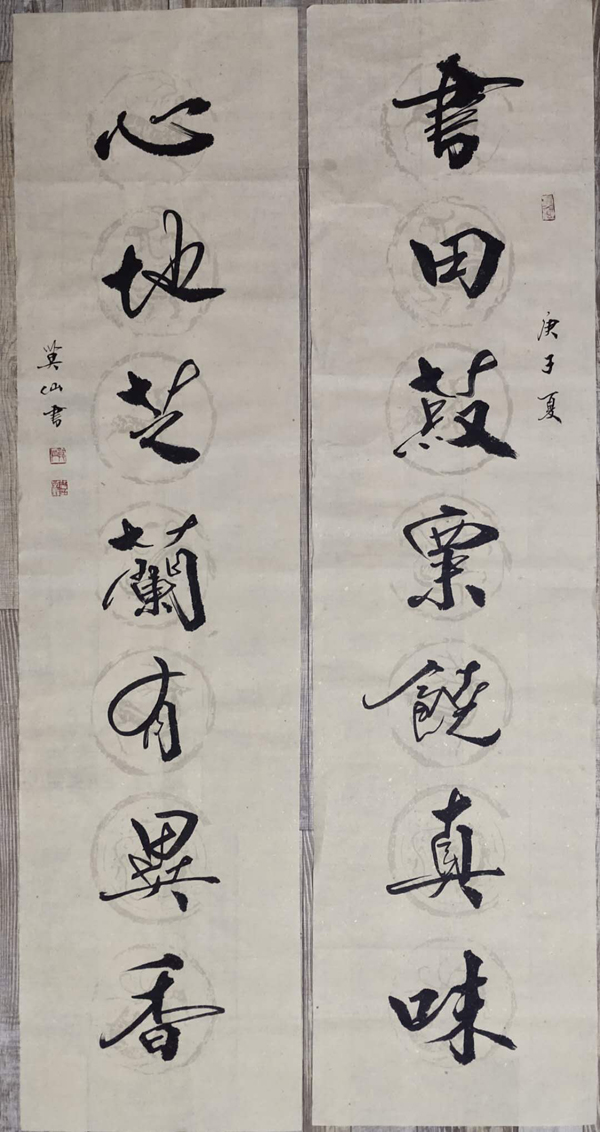 書田菽粟饒真味
庚子夏
心地芝蘭有異香
仙书